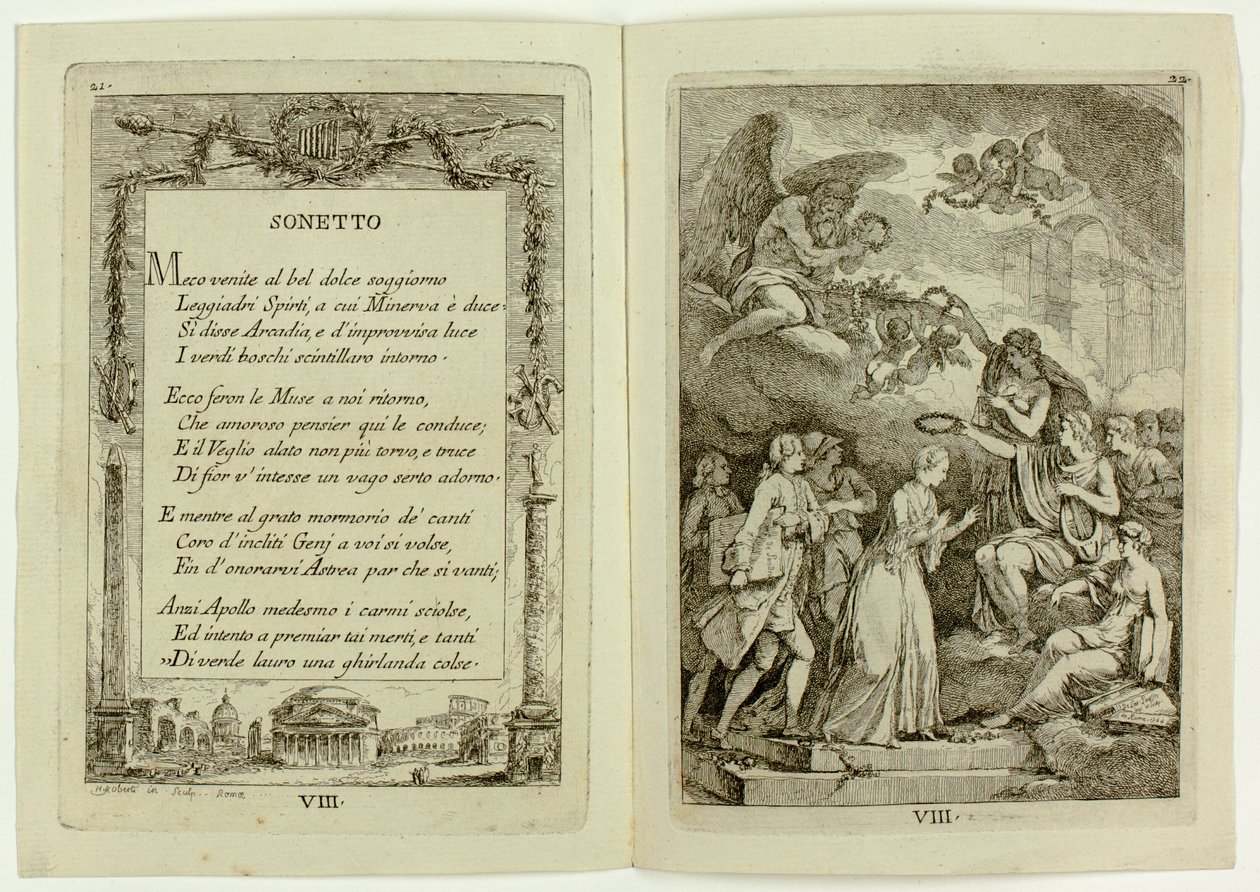 21.
SONETTO
Meco venite al bel dolce soggiorno
Leggiadri Spirti, a cui Minerva è duce:
Sì disse Arcadia, e d'improvvisa luce
I verdi boschi scintillaro intorno.
Ecco feron le Muse a noi ritorno,
Che amoroso pensier qui le conduce;
E il Veglio alato non più torvo, e truce
Di fior v'intesse un vago serto adorno.
E mentre al grato mormorio de' canti
Coro d'incliti Genj a voi si volse,
Fin d'onorarvi Astrea par che si vanti;
Anzi Apollo medesmo i carmi sciolse,
Ed intento a premiar tai merti, e tanti
„Di verde lauro una ghirlanda colse.
H. Roberti in Sculp. Romæ
VIII.
22.
VIII.